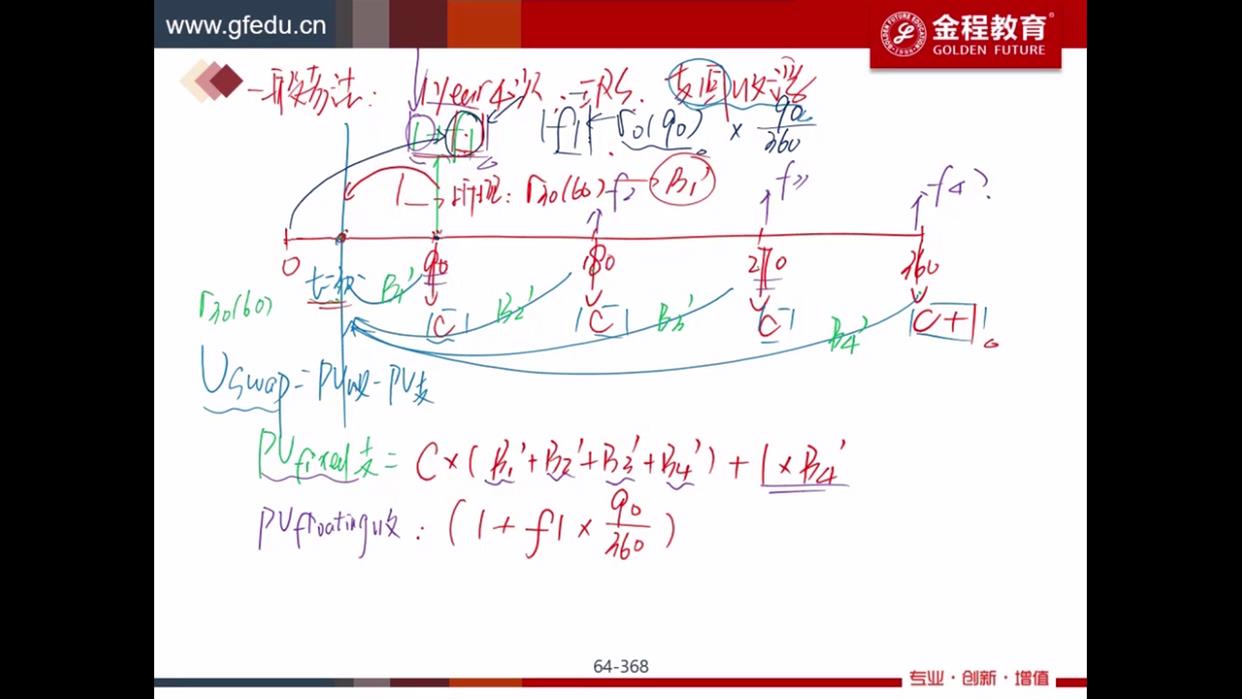 www.gfedu.cn
金程教育
GOLDEN FUTURE
一般方法: 1year 4次
1+f1 f1 ← r0(90) × 90/360
折现: r30(60) → B1'
f2 f3 f4?
0 t=30 90 180 270 360
r30(60) B1' B2' B3' B4'
C C C C+1
Uswap = PV收 - PV支
PVfixed支 = C×(B1'+B2'+B3'+B4')+1×B4'
PVfloating收: (1+f1×90/360)
64-368
专业·创新·增值